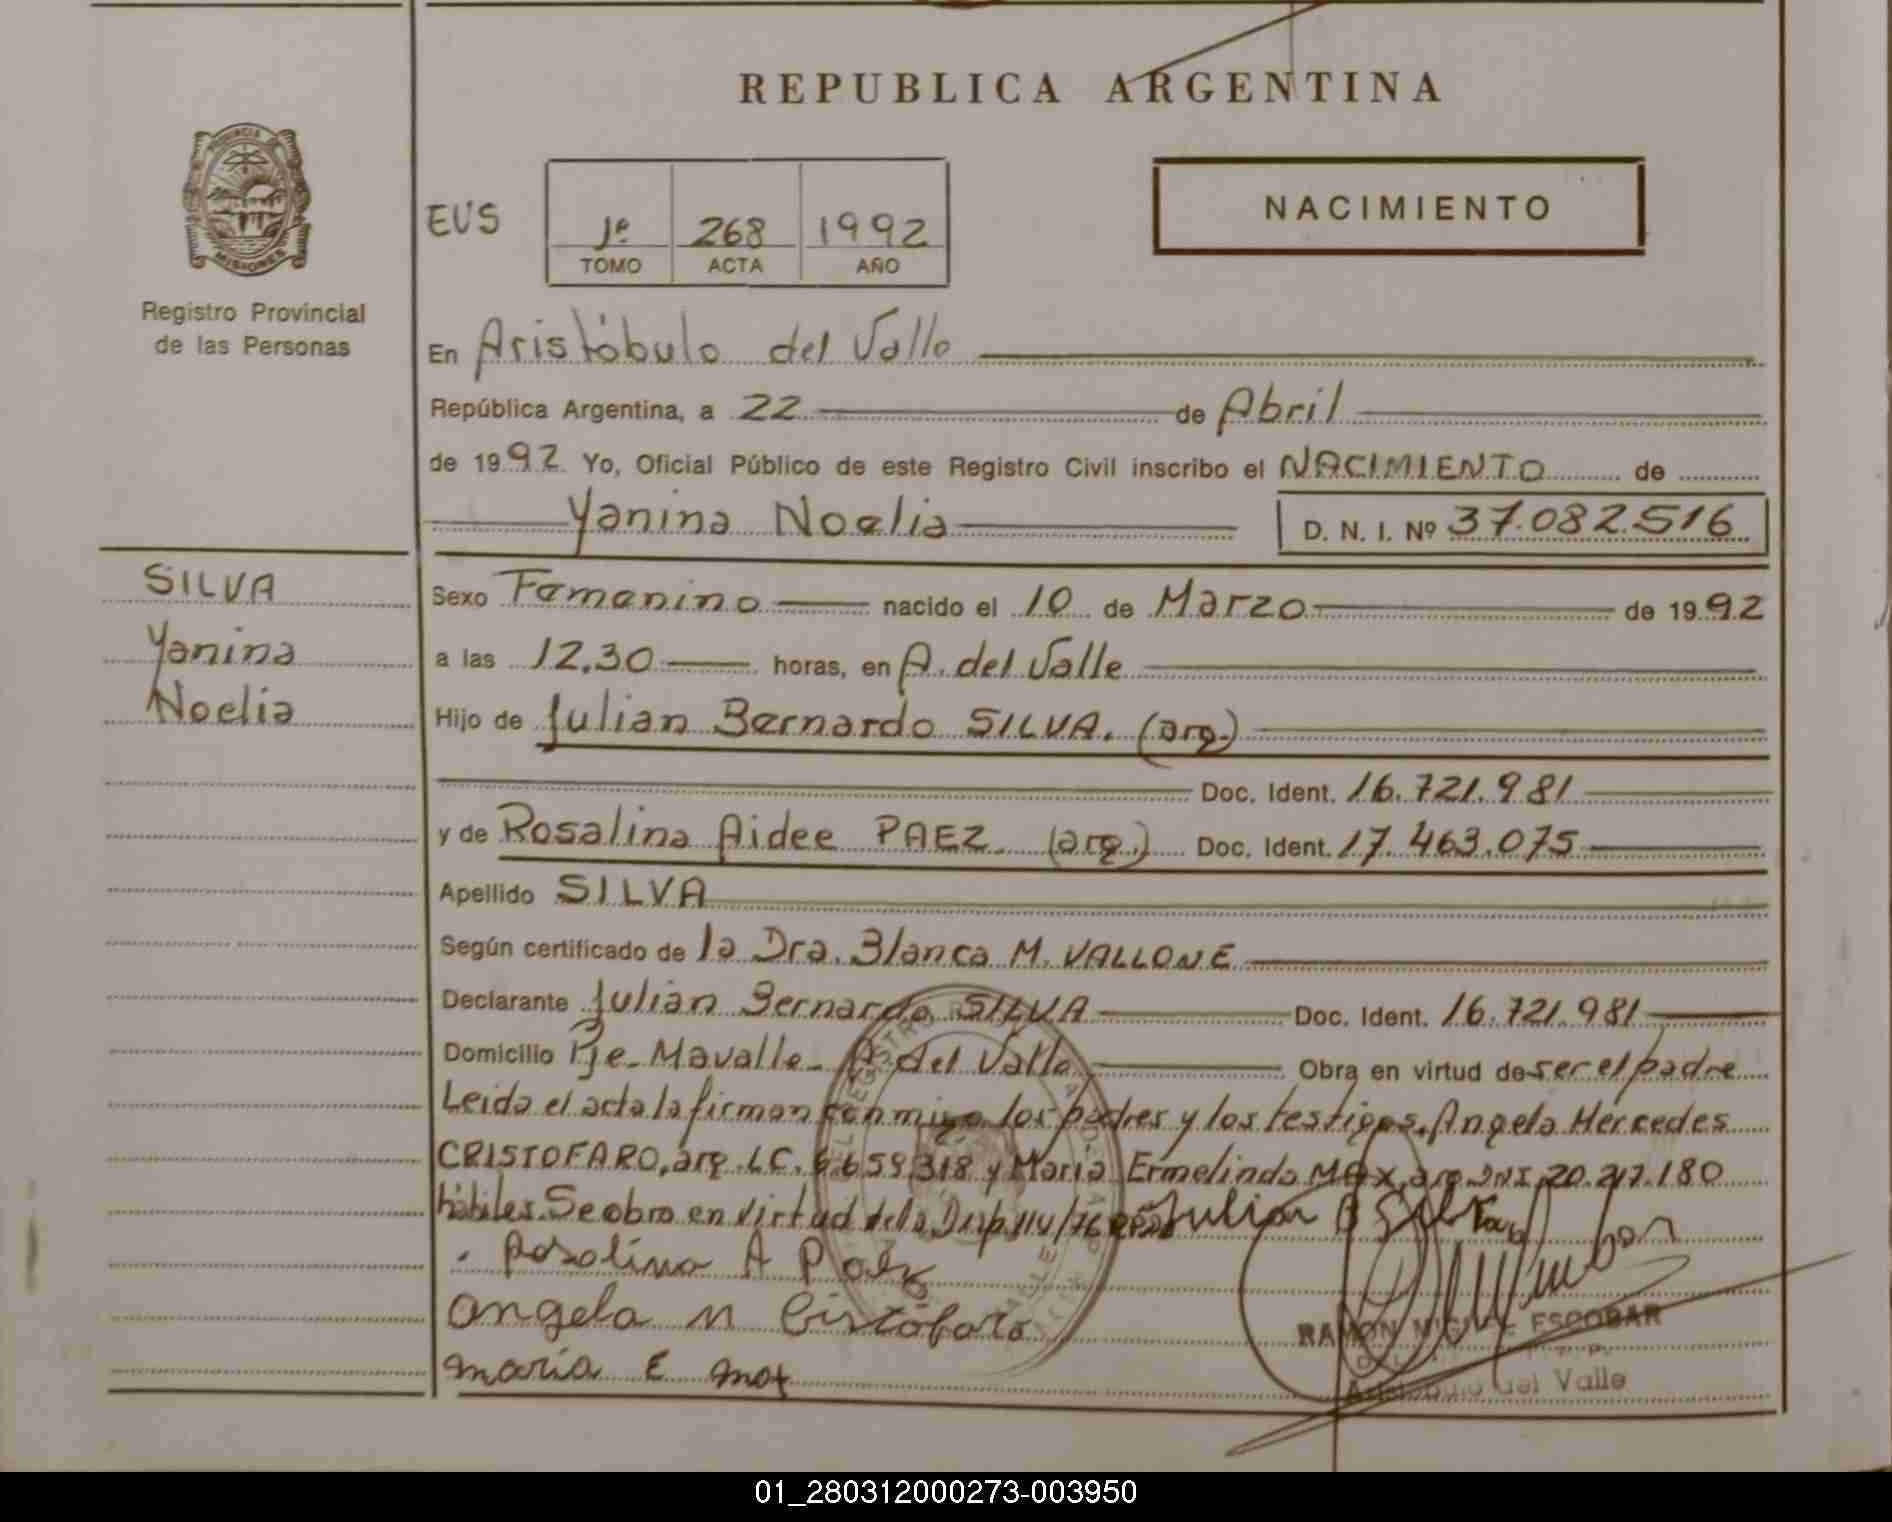 REPUBLICA ARGENTINA
PROVINCIA
MISIONES
Registro Provincial
de las Personas
EUS
1º 268 1992
TOMO ACTA AÑO
NACIMIENTO
En Aristóbulo del Valle
República Argentina, a 22 de Abril
de 1992 Yo, Oficial Público de este Registro Civil inscribo el NACIMIENTO de
Yanina Noelia D. N. I. Nº 37.082.516
SILVA
Yanina
Noelia
Sexo Femenino nacido el 10 de Marzo de 1992
a las 12.30 horas, en A. del Valle
Hijo de Julian Bernardo SILVA. (arg.)
Doc. Ident. 16.721.981
y de Rosalina Aidee PAEZ (arg.) Doc. Ident. 17.463.075
Apellido SILVA
Según certificado de la Dra. Blanca M. VALLONE
Declarante Julian Bernardo SILVA Doc. Ident. 16.721.981
Domicilio Pje. Mavalle - A. del Valle Obra en virtud de ser el padre
Leida el acta la firman conmigo los padres y los testigos, Angela Mercedes
CRISTOFARO, arg. L.C. 6.659.318 y Maria Ermelinda MAX, arg. DNI. 20.217.180
hábiles. Se obra en virtud de la Disp. 114/76 Julian B Silva
Rosalina A Paez
Angela M Cristófaro
maria E max
RAMON MIGUEL ESCOBAR
Aristobulo del Valle
01_280312000273-003950